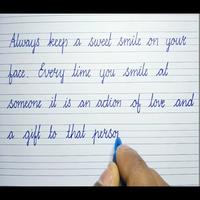 Always keep a sweet smile on your
face. Every time you smile at
someone it is an action of love and
a gift to that perso